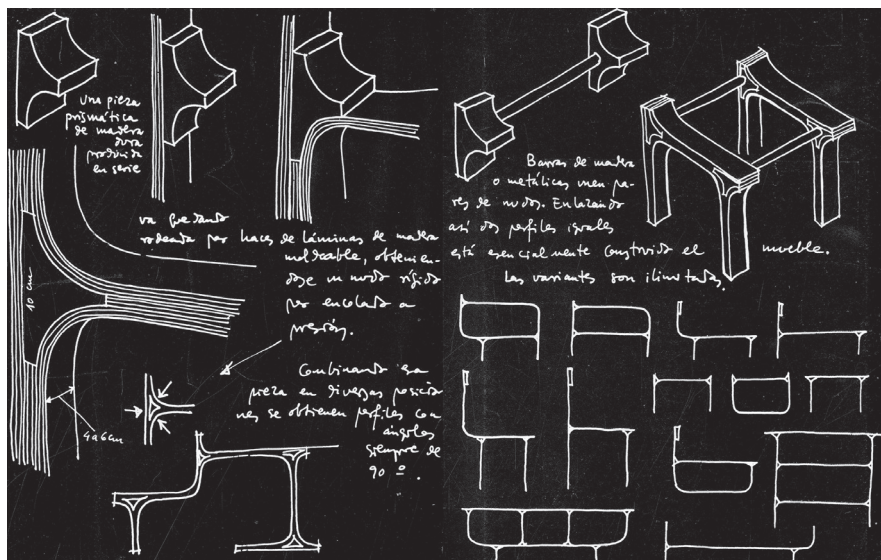 una pieza
prismática
de madera
dura
producida
en serie
va quedando
rodeada por haces de láminas de madera
moldeable, obtenien-
dose un nudo rígido
por encolado a
presión.
10 cm
Combinando esa
pieza en diversas posicio
nes se obtienen perfiles con
ángulos
siempre de
90 º.
4 a 6 cm
Barras de madera
o metálicas unen pa-
res de nudos. Enlazando
así dos perfiles iguales
está esencialmente construido el mueble.
Las variantes son ilimitadas.